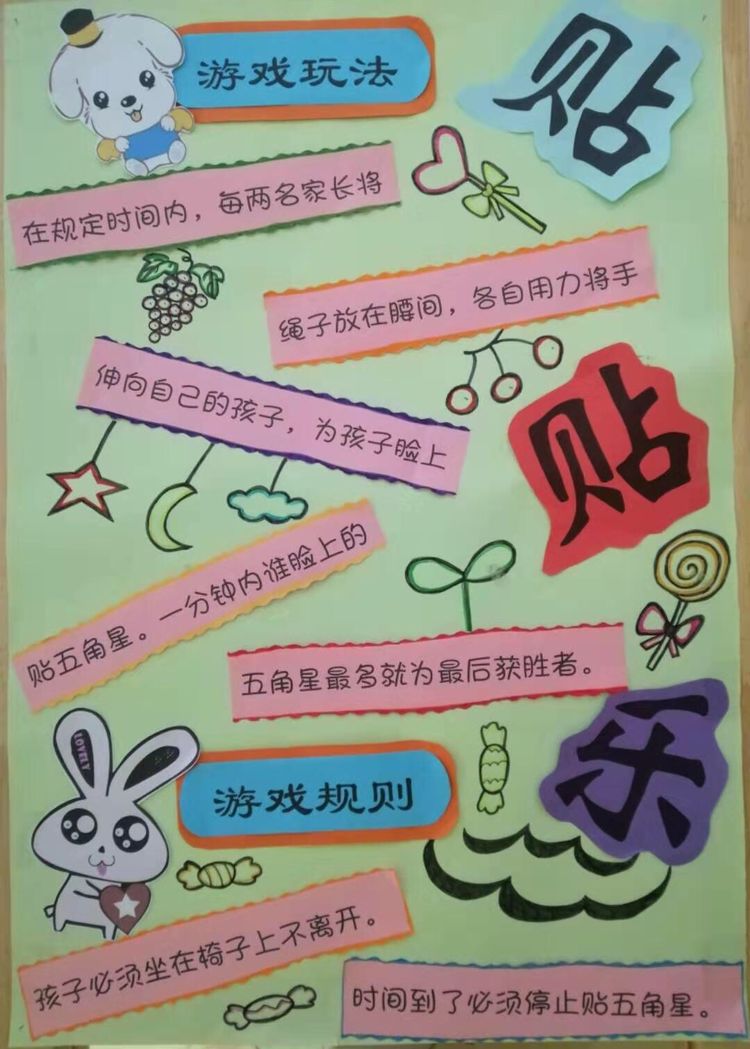 贴
贴
乐
游戏玩法
在规定时间内，每两名家长将
绳子放在腰间，各自用力将手
伸向自己的孩子，为孩子脸上
贴五角星。一分钟内谁脸上的
五角星最多就为最后获胜者。
LOVELY
游戏规则
孩子必须坐在椅子上不离开。
时间到了必须停止贴五角星。